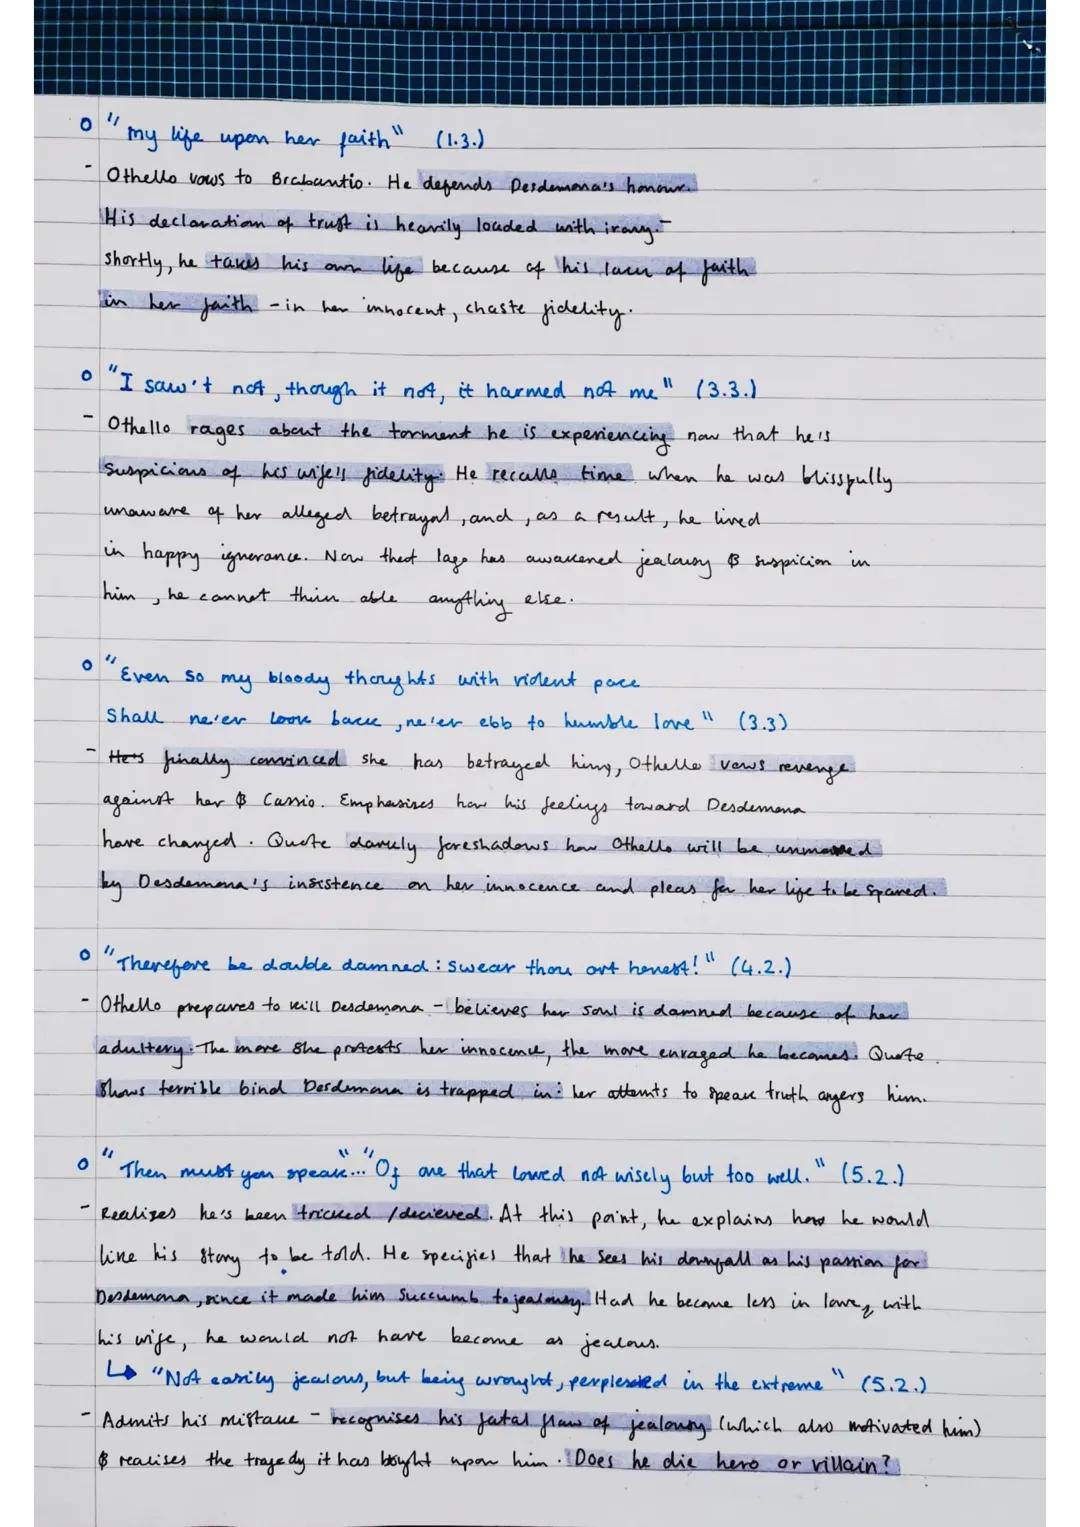 o "my life upon her faith" (1.3.)
- Othello vows to Brabantio. He defends Desdemona's honour.
His declaration of trust is heavily loaded with irony. -
shortly, he takes his own life because of his lack of faith
in her faith - in her innocent, chaste fidelity.
o "I saw't not, though it not, it harmed not me" (3.3.)
- Othello rages about the torment he is experiencing now that he's
suspicious of his wife's fidelity. He recalls time when he was blissfully
unaware of her alleged betrayal, and, as a result, he lived
in happy ignorance. Now that Iago has awakened jealousy & suspicion in
him, he cannot think able anything else.
o "Even so my bloody thoughts with violent pace
Shall ne'er look back, ne'er ebb to humble love" (3.3)
- He's finally convinced she has betrayed him, Othello vows revenge
against her & Cassio. Emphasises how his feelings toward Desdemona
have changed. Quote darkly foreshadows how Othello will be unmoved
by Desdemona's insistence on her innocence and pleas for her life to be spared.
o "Therefore be double damned: swear thou art honest!" (4.2.)
- Othello prepares to kill Desdemona - believes her soul is damned because of her
adultery. The more she protests her innocence, the more enraged he becomes. Quote
shows terrible bind Desdemona is trapped in: her attemts to speak truth angers him.
o "Then must you speak..." "Of one that loved not wisely but too well." (5.2.)
- Realizes he's been tricked / decieved. At this point, he explains how he would
like his story to be told. He specifies that he sees his downfall as his passion for
Desdemona, since it made him succumb to jealousy. Had he become less in love, with
his wife, he would not have become as jealous.
↳ "Not easily jealous, but being wrought, perplexed in the extreme" (5.2.)
- Admits his mistake - recognises his fatal flaw of jealousy (which also motivated him)
& realises the tragedy it has bought upon him. Does he die hero or villain?